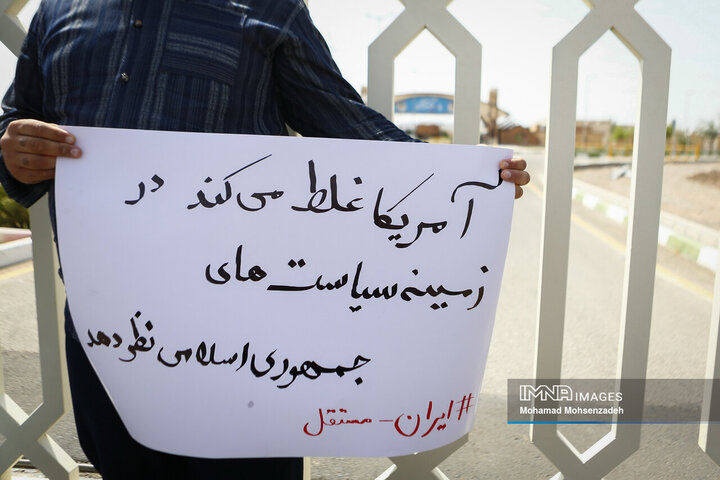 آمریکا غلط می کند در
زمینه سیاست های
جمهوری اسلامی نظر دهد
#ایران-مستقل
IMNA IMAGES
Mohamad Mohsenzadeh